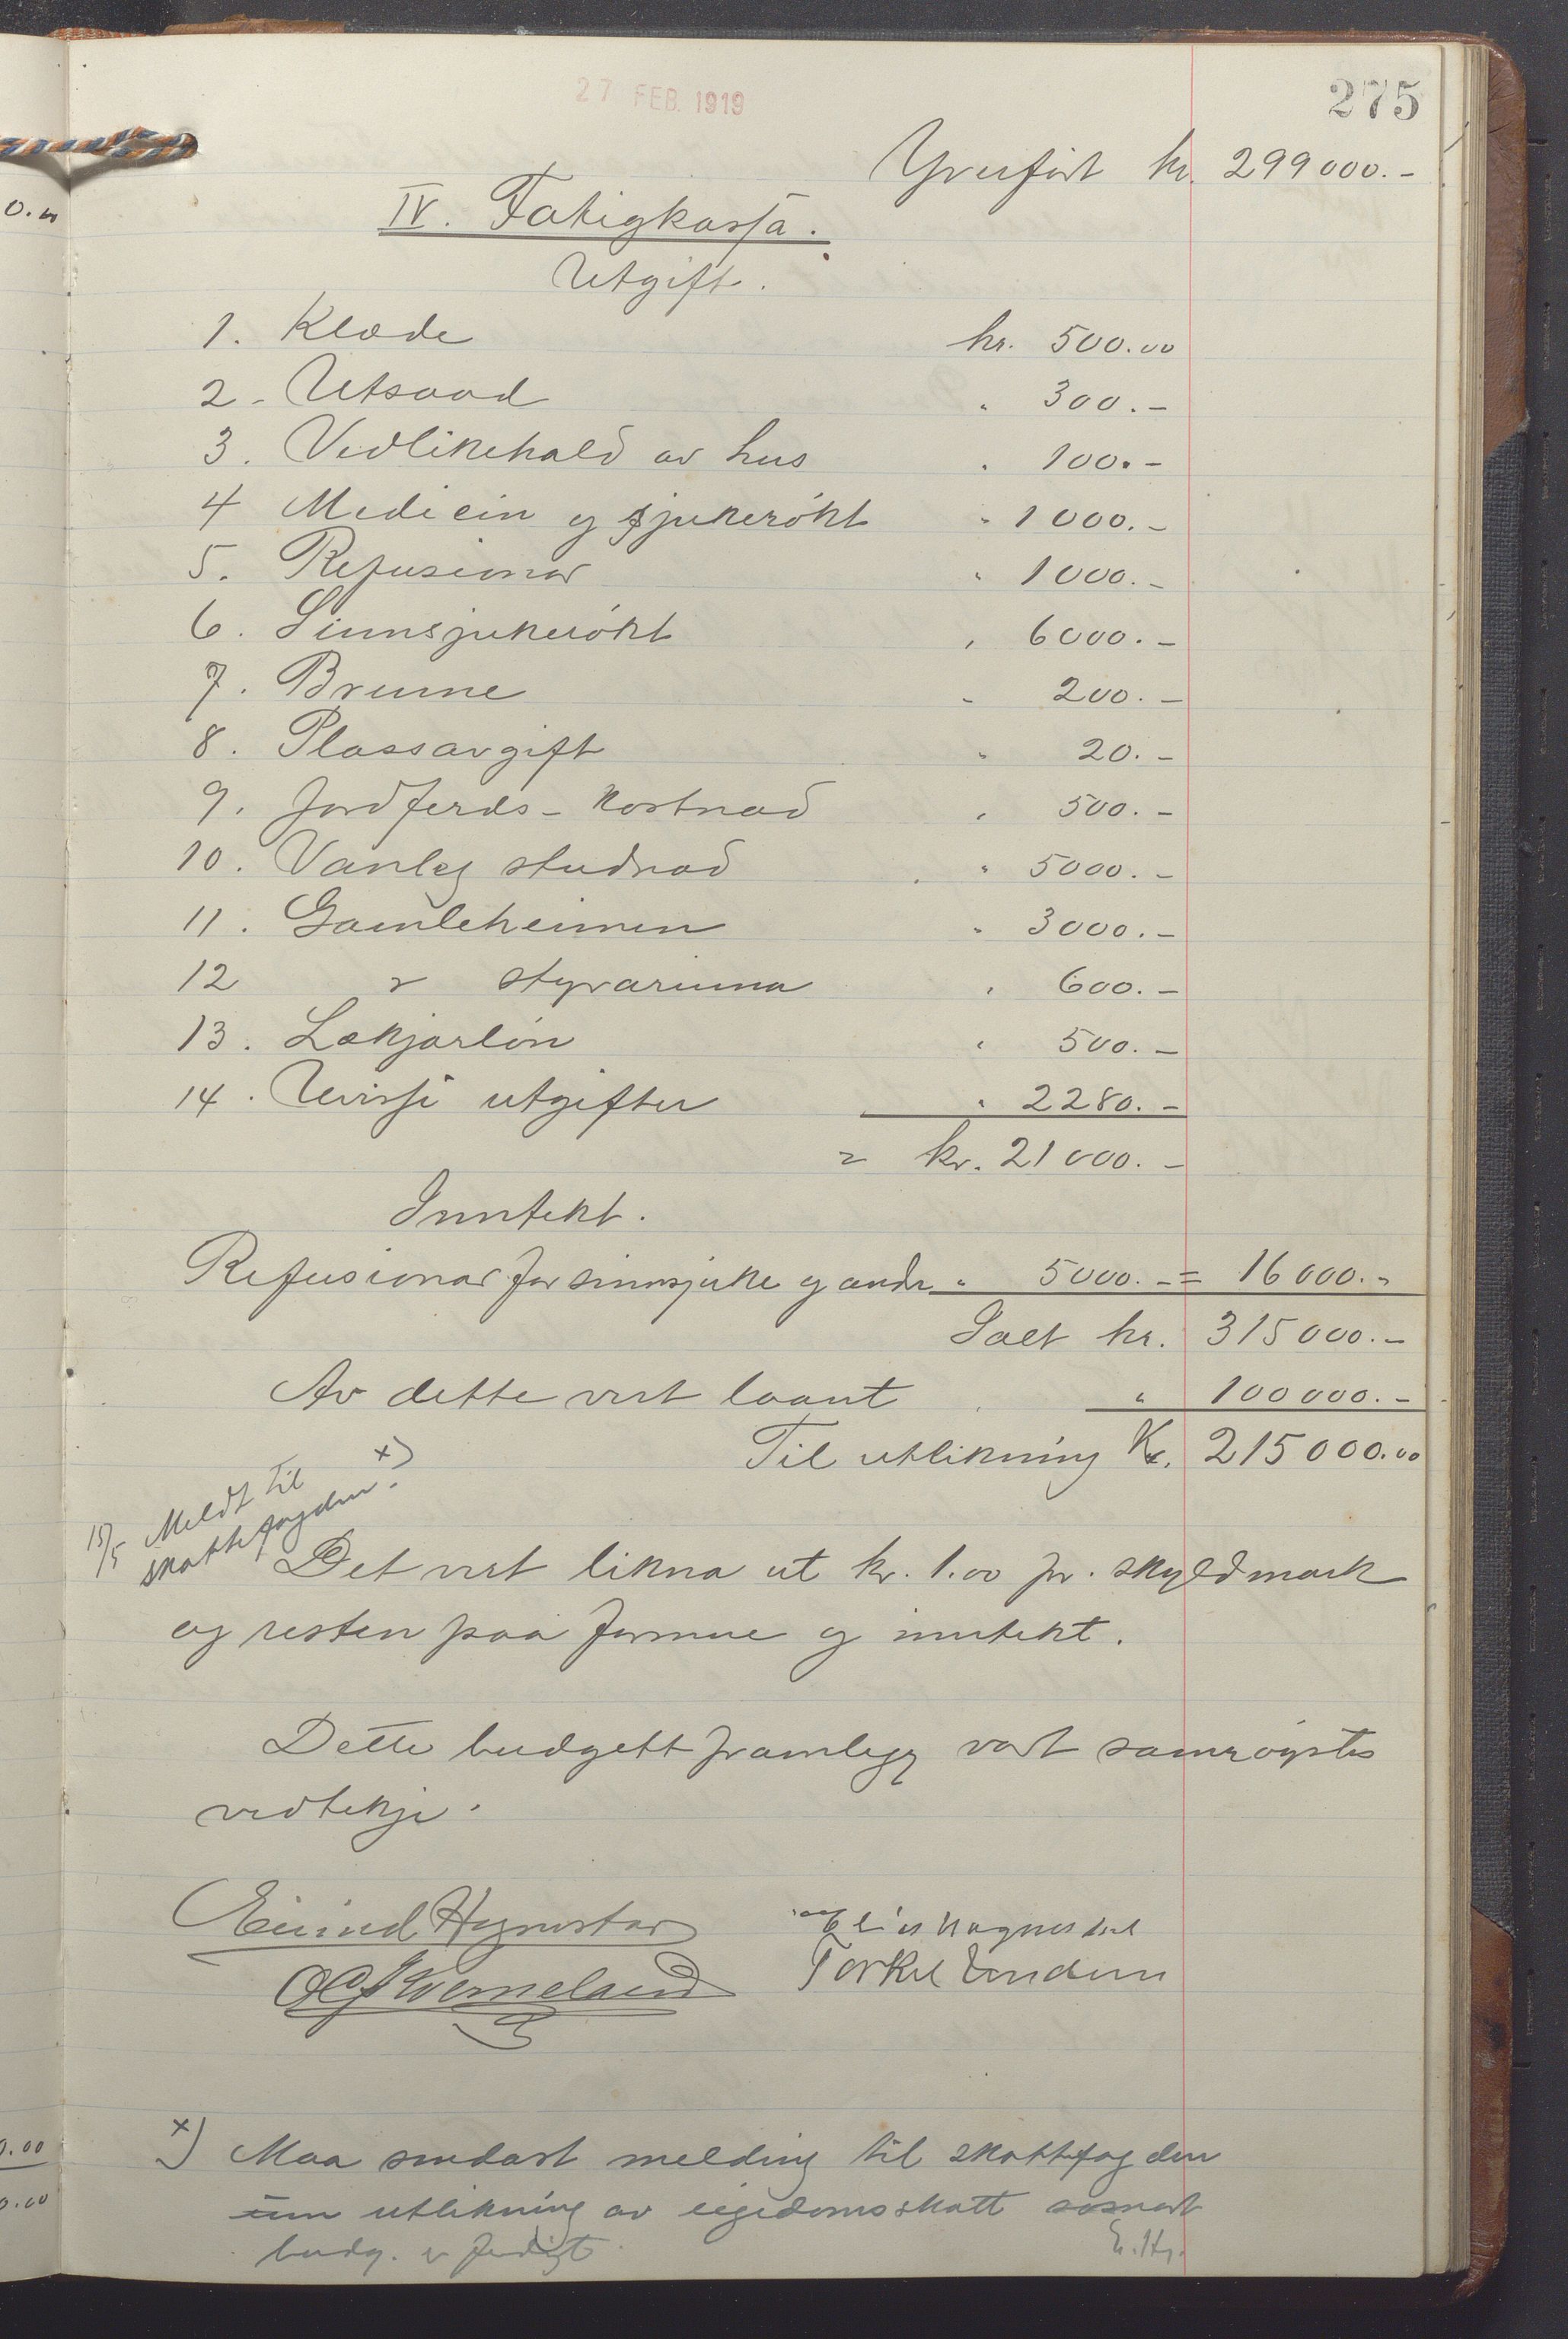 27 FEB. 1919
275
Yverført kr. 299000.-
IV. Fatigkassa.
Utgift.
1. Klæde kr. 500.00
2. Utsaad " 300.-
3. Vedlikehald av hus " 100.-
4 Medicin og sjukerøkt " 1000.-
5. Refusionar " 1000.-
6. Sinnsjukerøkt " 6000.-
7. Brenne " 200.-
8. Plassavgift " 20.-
9. Jordferds-kostnad " 500.-
10. Vanleg studnad " 5000.-
11. Gamleheimen " 3000.-
12 " styrarinna " 600.-
13. Lækjarløn " 500.-
14. Uvisse utgifter " 2280.-
= kr. 21000.-
Inntekt.
Refusionar for sinnsjuke og andr. " 5000.- = 16000.-
Ialt kr. 315000.-
Av dette vert laant " 100000.-
Til utlikning Kr. 215000.00
15/5 Meldt til x)
skattefogden.
Det vert likna ut kr. 1.00 pr. skyldmark
og resten paa formue og inntekt.
Dette budgettframlegg vart samrøystes
vedtekje.
Eivind Hognestad
Torkel
x) Maa sendast melding til skattefogden
um utlikning av eigedomsskatt sosnart
budg. er ferdigt.
E. Hg.
0.00
0.00